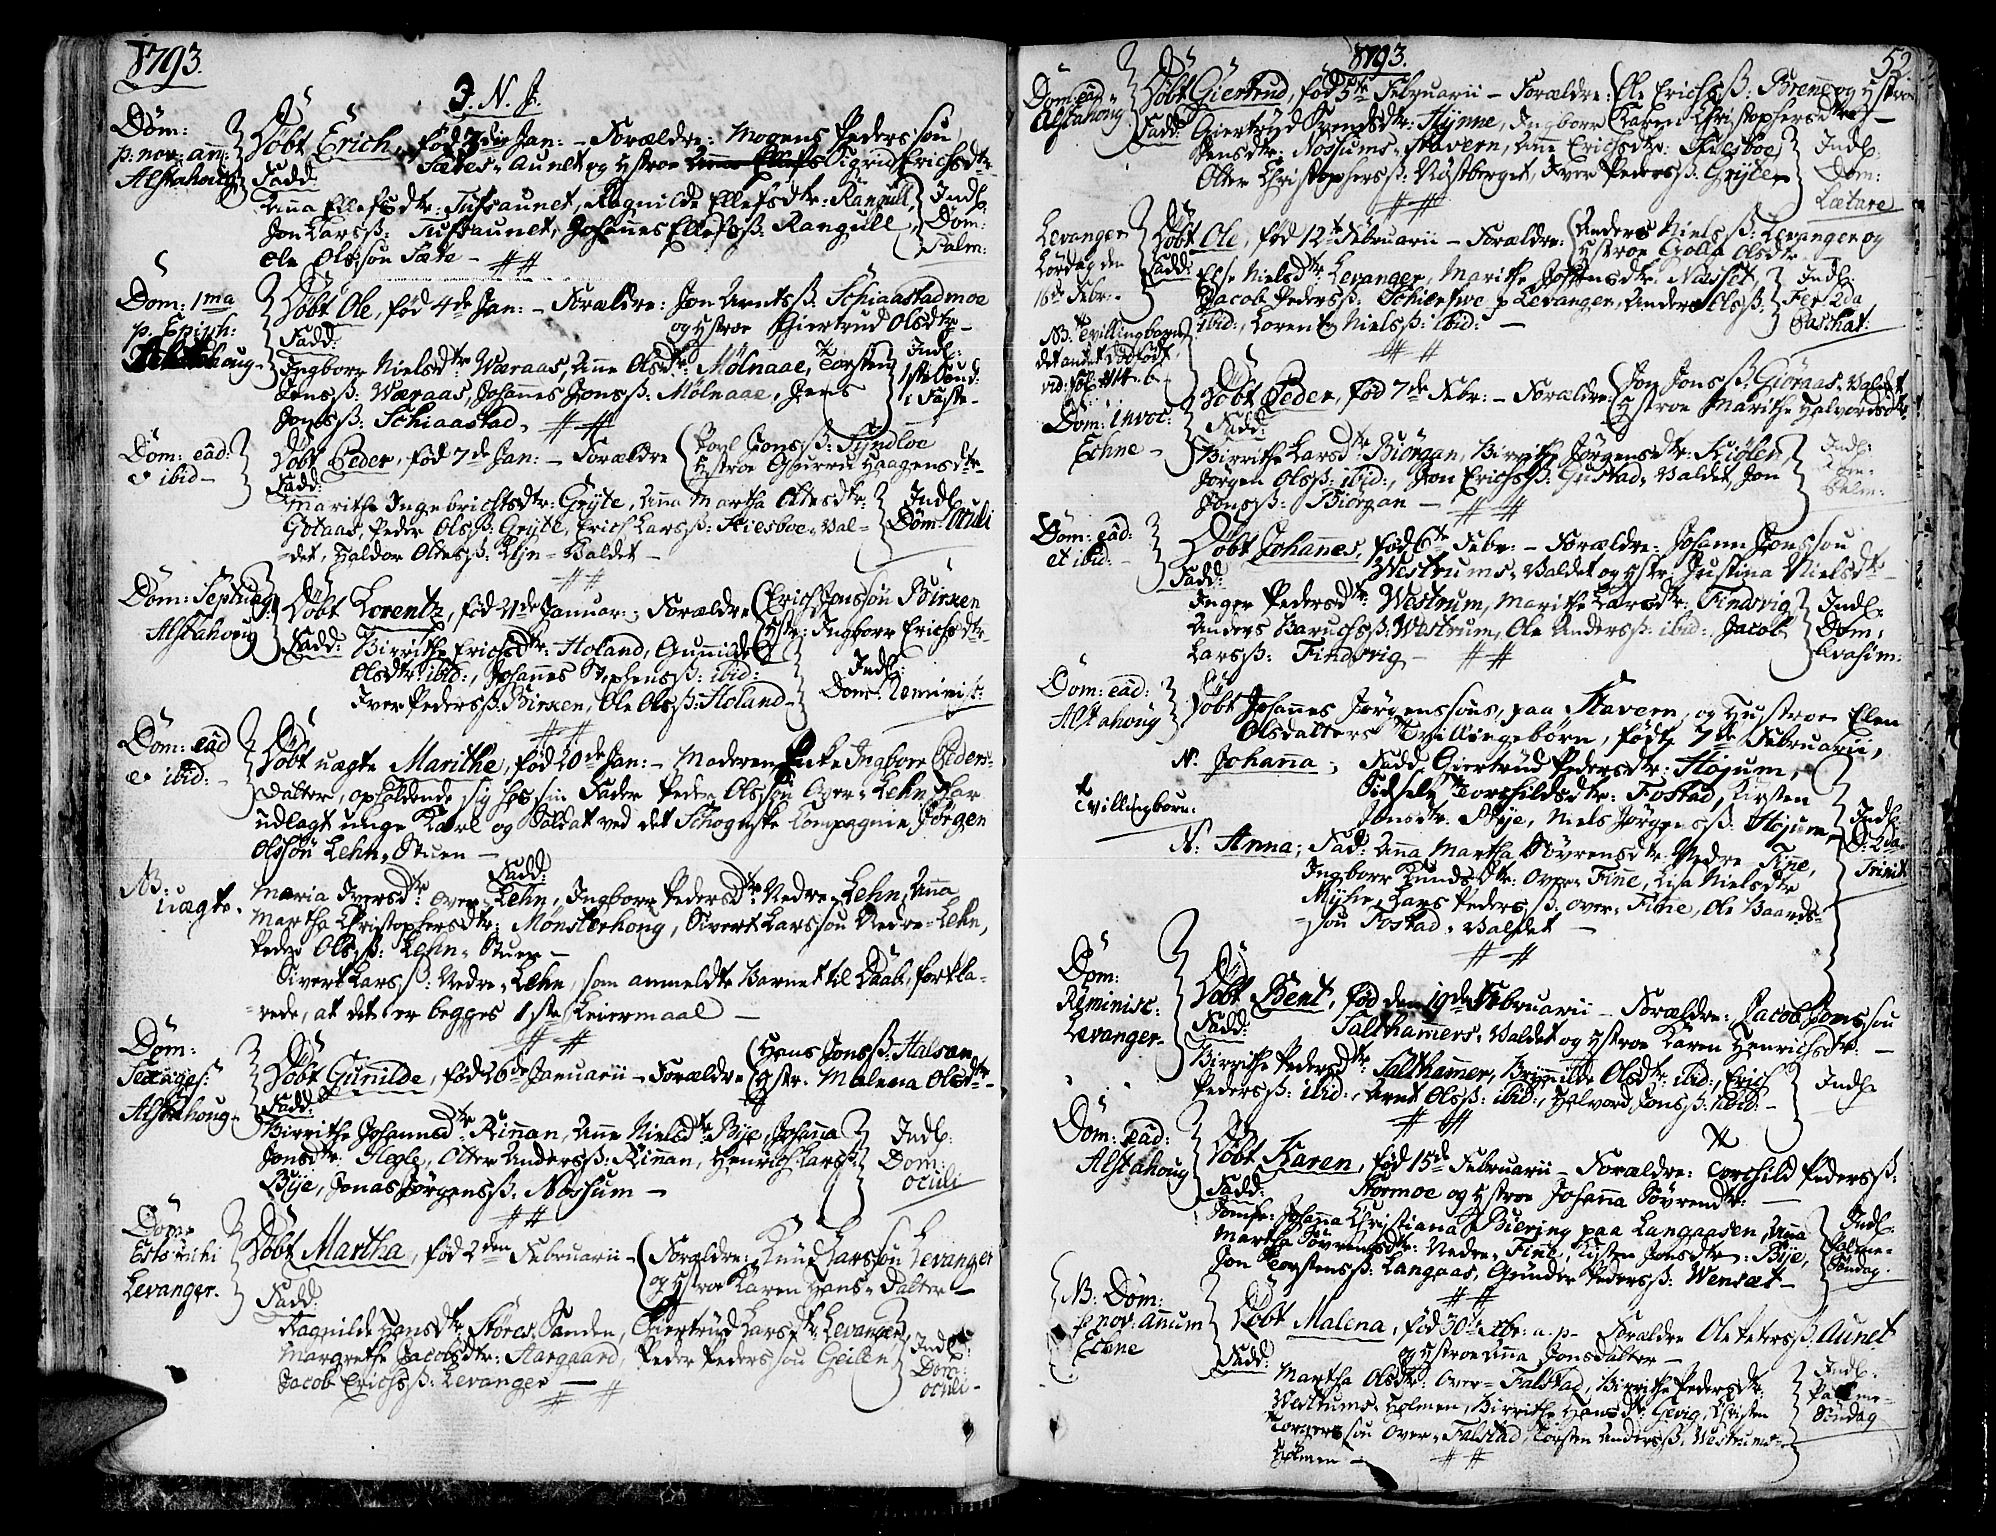 1793.
3. N. J.
Dom: p: nov: ann: Alstahoug
Döbt Erich, fød 3die Jan: – Forældre: Mogens Pedersson
Sætes-Aunet og Hstroe Sigrid Erichsdtr
Fadd:
Anna Ellefsdtr: Tufsaunet, Ragnilde Ellefsdtr: Rangull,
Jon Larsß: Tufsaunet, Johannes Ellefsß: Rangull,
Ole Olsson Sæte –
Indl: Dom: Palm:
Dom: 1ma p. Epiph: Alstahoug –
Döbt Ole, fød 4de Jan: – Forældre: Jon Arntsß: Schiaastadmoe
og Hstroe Giertrud Olsdtr –
Fadd:
Ingborr Nielsdtr Wæraas, Ane Olsdtr: Mølnaae, Torsten
Jensß: Wæraas, Johannes Jonsß: Mølnaae, Jens
Jonsß: Schiaastad.
Indl: 1ste Sønd: i Faste –
Dom: eâd: & ibid –
Döbt Peder, fød 7de Jan: – Forældre Povl Jonsß: Tyndloe
Hstroe Gurru Haagensdtr –
Fadd:
Marithe Ingebrichtsdtr: Gryte, Anna Martha Ottesdtr:
Gotaas, Peder Olsß: Gryte, Erich Larsß: Skiesboe-Val-
det, Haldor Oldesß: Lyn-Valdet –
Indl: Dom: Oculi
Dom: Septuag: Alstahoug
Döbt Lorentz, fød 21de Januar: – Forældre Erich Jonssøn Birxen
Hstr: Ingborr Erichsdtr
Fadd: Birrithe Erichsdtr: Holand, Gunnilde
Olsdtr: ibid:, Johannes Stephensß: ibid:
Iver Pedersß: Birxen, Ole Olsß: Holand –
Indl: Dom: Reminis:
Dom: eâd & ibid: –
Döbt uægte Marithe, fød 20de Jan: – Moderen Pike Ingborr Peders-
datter, opholdende sig hos sin Fader Peder Olssøn Over-Lehn, har
udlagt unge Karl og Soldat ved det Schognske Compagnie, Jörgen
Olssøn Lehn-Stuen –
NB: uægte.
Fadd:
Maria Iversdtr: Over-Lehn, Ingborr Pedersdtr: Nedre-Lehn, Anna
Martha Christophersdtr: Mønsterhoug, Sivert Larssøn Nedre-Lehn,
Peder Olsß: Lehn-Stuen –
Sivert Larsß: Nedre-Lehn, som anmeldte Barnet til Daab, forkla-
rede, at det er begges 1ste Leiermaal –
Dom: Sexages: Alstahoug –
Döbt Gunilde, fød 26de Januarii – Forældre Hans Jonsß: Halsan
Hstr. Malena Olsdtr –
Fadd:
Birrithe Johannsdtr: Rinnan, Ane Nielsdtr: Bye, Johanna
Jonsdtr: Hegle, Olter Andersß: Rinnan, Henrich Larsß:
Bye, Jonas Jörgensß: Nossum –
Indl: Dom: Oculi
Dom: Esto mihi Levanger.
Döbt Martha, fød 2den Februarii – Forældre: Knud Larssøn Levanger
og Hstroe Karen Hans-Datter –
Fadd:
Ragnilde Hansdtr: Störes-Sanden, Giertrud Larsdtr: Levanger,
Margrethe Jacobsdtr: Aargaard, Peder Pederssøn Geilen
Jacob Erichsß: Levanger –
Indl: Dom: Oculi –
1793.
52.
Dom: eâd: Alstahoug
Döbt Giertrud, fød 5te Februarii – Forældre: Ole Erichsß: Borene og Hstroe
Karen Christophersdtr –
Fadd: Giertrud Svendsdtr: Hynne, Ingborr
Stensdtr: Nossums-Stavern, Ane Erichsdtr: Skiesboe,
Olter Christophersß: Røstberget, Iver Pedersß: Gryte –
Indl: Dom: Lætare
Levanger Lørdag den 16de Febr: –
Döbt Ole, fød 12te Februarii – Forældre: Anders Nielsß: Levanger og
Hstroe Golla Olsdtr –
Fadd: Else Nielsdtr Levanger, Marithe Johnsdtr: Nusset
Jacob Pedersß: Schierfwe p Levanger, Anders Olsß:
ibid:, Lorentz Nielsß: ibid: –
Indl: Fer: 2da Paschat:
NB: Tvillingbørn
det andet dødfødt
vid: fol: 114. b.
Dom: Invoc: Echne –
Döbt Peder, fød 7de Febr: – Forældre: Jon Jonsß: Giöraas-Valdet
Hstroe Marithe Halvordsdtr
Fadd:
Birrithe Larsdtr: Biörgan, Birrithe Jörgensdtr: Kiölen,
Jörgen Olsß: ibid:, Jon Erichsß: Gustad-Valdet, Jon
Jonsß: Biörgan –
Indl: Dom: Palm:
Dom: eâd: et ibid: –
Döbt Johannes, fød 6te Febr: – Forældre: Johann Jonssøn
Westrums-Valdet og Hstr: Justina Nielsdtr –
Fadd:
Inger Pedersdtr: Westrum, Marithe Larsdtr: Findsvig
Anders Baruchsß: Westrum, Ole Andersß: ibid:, Jacob
Larsß: Findsvig –
Indl: Dom: Qvasim:
Dom: eâd: Alstahoug
Döbt Johannes Jørgenssøns, paa Stavern, og Hustroe Elen
Olsdatters Tvillingebørn, fødte 7de Februarii,
Tvillingborn:
N: Johanna; Fadd Giertrud Pedersdtr: Höjum,
Sidsele Torchildsdtr: Fostad, Kirsten
Jonsdtr. Bye, Niels Jørgensß: Höjum,
N: Anna; Fad: Anna Martha Søvrensdtr. Nedre Fine,
Ingborr Knudsdtr: Over-Fine, Lisa Nielsdtr
Myhr, Lars Pedersß: Over-Fine, Ole Baards-
søn Fostad-Valdet –
Indl: D: 2da Trinit
Dom: Reminisc: Levanger –
Döbt Bent, fød den 19de Februarii – Forældre: Jacob Jonssøn
Salthamers-Valdet og Hstroe Karen Henrichsdtr: –
Fadd:
Birrithe Pedersdtr: Salthammer, Brynnilde Olsdtr: ibid:, Erich
Pedersß: ibid:, Arnt Olsß: ibid:, Halvord Jonsß: ibid: –
Indl:
Dom: eâd: Alstahoug
Döbt Karen, fød 15de Februarii – Forældre: Torchild Pedersß:
Stormoe og Hstroe Johanna Søvrendtr: –
Fadd:
Jomfr: Johanna Christiana Buering paa Langaasen, Anna
Martha Søvrensdtr: Nedre-Fine, Kirsten Jonsdtr: Bye,
Jon Torstensß: Langaas, Gunder Pedersß: Wensæt –
Indl: Palme-Søndag.
NB: Dom: p nov: annum Echne
Döbt Malena, fød 30te Xbr: a. p – Forældre Ole Petersß: Aunet
og Hstroe Anna Jonsdatter –
Fadd:
Martha Olsdtr: Over-Falstad, Birrithe Pedersdtr:
Westrums-Holmen, Birrithe Hansdtr: Gevig, Christen
Torgerssøn Over-Falstad, Torsten Andersß. Westrums-
Holmen –
Indl: Palme-Søndag